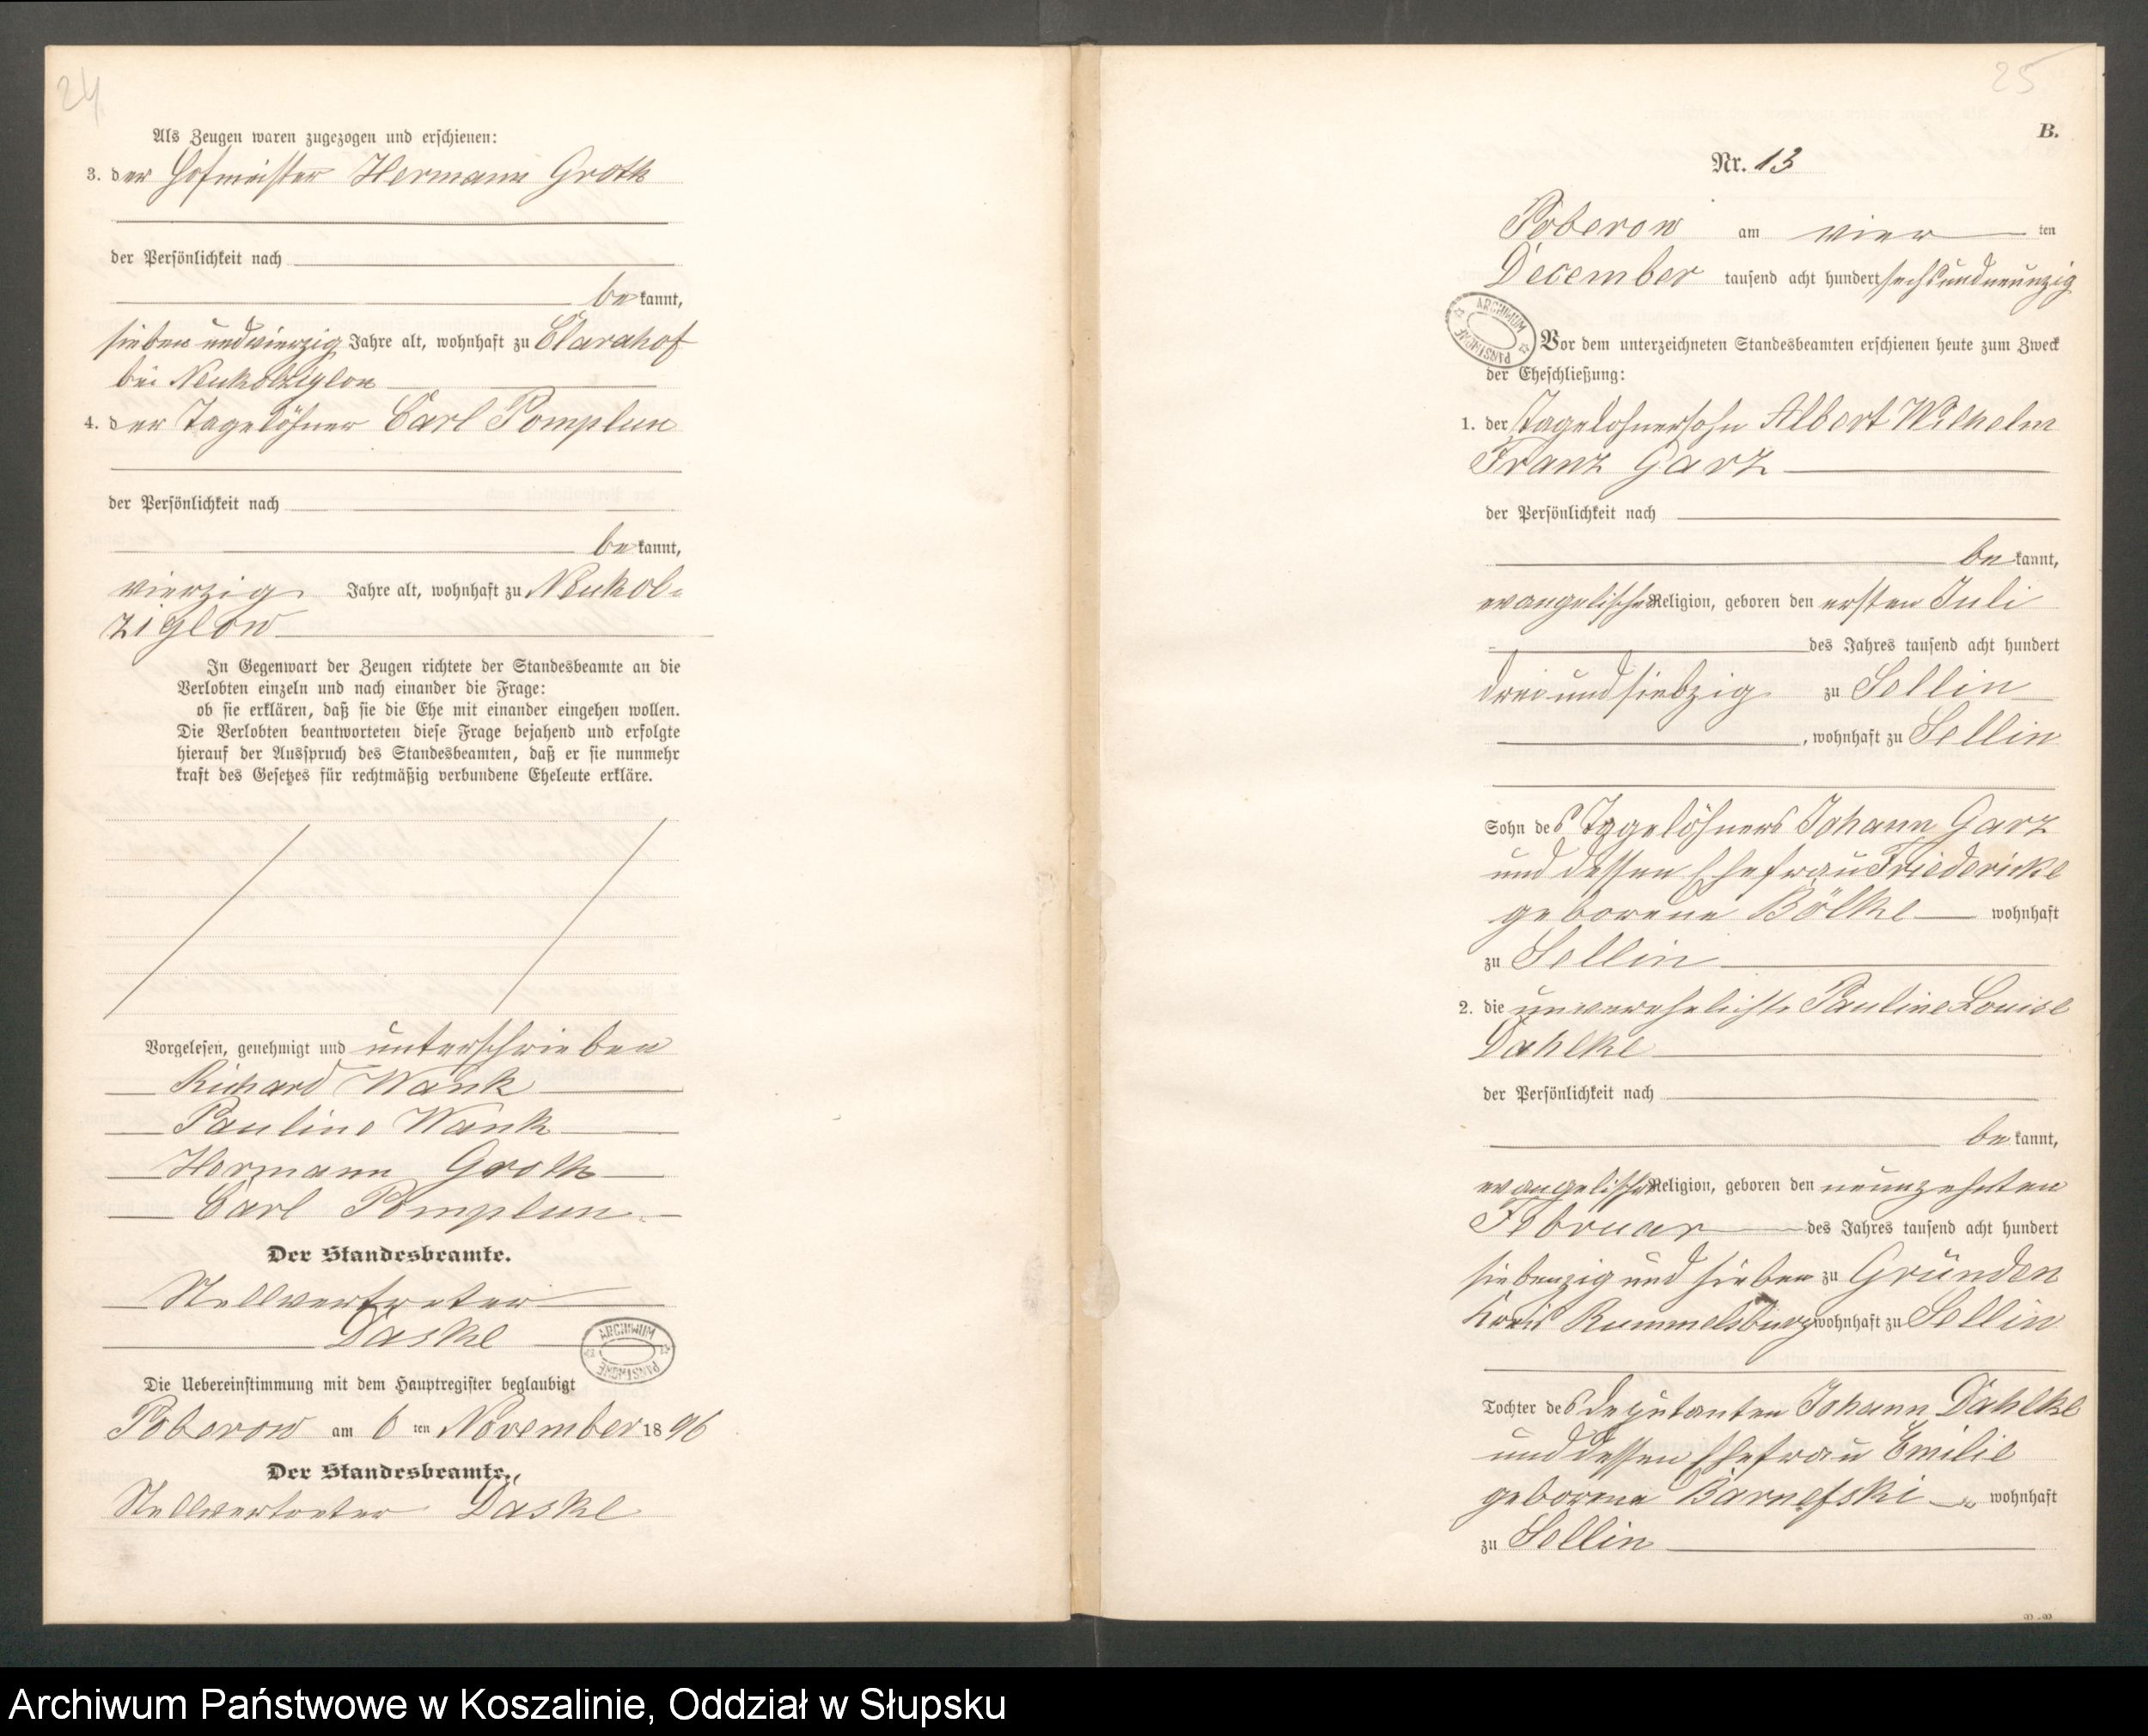 24
Als Zeugen waren zugezogen und erschienen:
3. der Hofmeister Hermann Groth
der Persönlichkeit nach
bekannt,
siebenundvierzig Jahre alt, wohnhaft zu Clarahof
bei Neukolziglow
4. der Tagelöhner Carl Pomplun
der Persönlichkeit nach
bekannt,
vierzig Jahre alt, wohnhaft zu Neukol-
ziglow
In Gegenwart der Zeugen richtete der Standesbeamte an die
Verlobten einzeln und nach einander die Frage:
ob sie erklären, daß sie die Ehe mit einander eingehen wollen.
Die Verlobten beantworteten diese Frage bejahend und erfolgte
hierauf der Ausspruch des Standesbeamten, daß er sie nunmehr
kraft des Gesetzes für rechtmäßig verbundene Eheleute erkläre.
Vorgelesen, genehmigt und unterschrieben
Richard Wank
Pauline Wank
Hermann Groth
Carl Pomplun
Der Standesbeamte.
Stellvertreter
Daske
ARCHIWUM PAŃSTWOWE
Die Uebereinstimmung mit dem Hauptregister beglaubigt
Poberow am 6 ten November 1896
Der Standesbeamte.
Stellvertreter Daske
25
B.
Nr. 13
Poberow am vier ten
December tausend acht hundert sechsundneunzig
ARCHIWUM PAŃSTWOWE
Vor dem unterzeichneten Standesbeamten erschienen heute zum Zweck
der Eheschließung:
1. der Tagelöhnersohn Albert Wilhelm
Franz Garz
der Persönlichkeit nach
bekannt,
evangelischer Religion, geboren den ersten Juli
des Jahres tausend acht hundert
dreiundsiebzig zu Sellin
, wohnhaft zu Sellin
Sohn des Tagelöhners Johann Garz
und dessen Ehefrau Friedericke
geborene Bölke wohnhaft
zu Sellin
2. die unverehelichte Pauline Louise
Dahlke
der Persönlichkeit nach
bekannt,
evangelischer Religion, geboren den neunzehnten
Februar des Jahres tausend acht hundert
siebenzig und sieben zu Gründen
Kreis Rummelsburg wohnhaft zu Sellin
Tochter des Deputanten Johann Dahlke
und dessen Ehefrau Emilie
geborene Barnefski wohnhaft
zu Sellin
Archiwum Państwowe w Koszalinie, Oddział w Słupsku